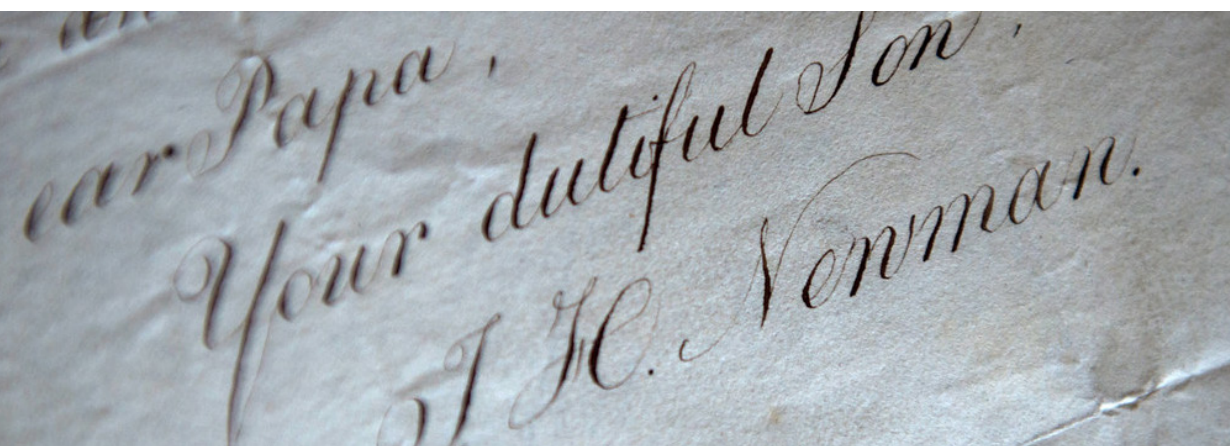 ear Papa,
Your dutiful Son,
J H. Newman.